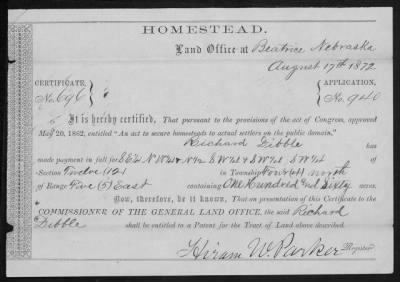 HOMESTEAD.
Land Office at Beatrice Nebraska
August 17th 1872
CERTIFICATE, APPLICATION,
No. 696 } No. 940
It is hereby certified, That pursuant to the provisions of the act of Congress, approved
May 20, 1862, entitled "An act to secure homesteads to actual settlers on the public domain,"
Richard Dibble has
made payment in full for S E¼ N W¼ & N½ S W¼ & S W¼ S W¼ of
Section Twelve (12) in Township Four (4) north
of Range Five (5) East containing One Hundred and Sixty acres.
Now, therefore, be it known, That on presentation of this Certificate to the
COMMISSIONER OF THE GENERAL LAND OFFICE, the said Richard
Dibble shall be entitled to a Patent for the Tract of Land above described.
Hiram W Parker Register